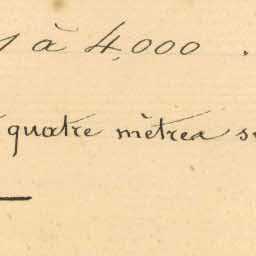 à 4,000 .
quatre mètres